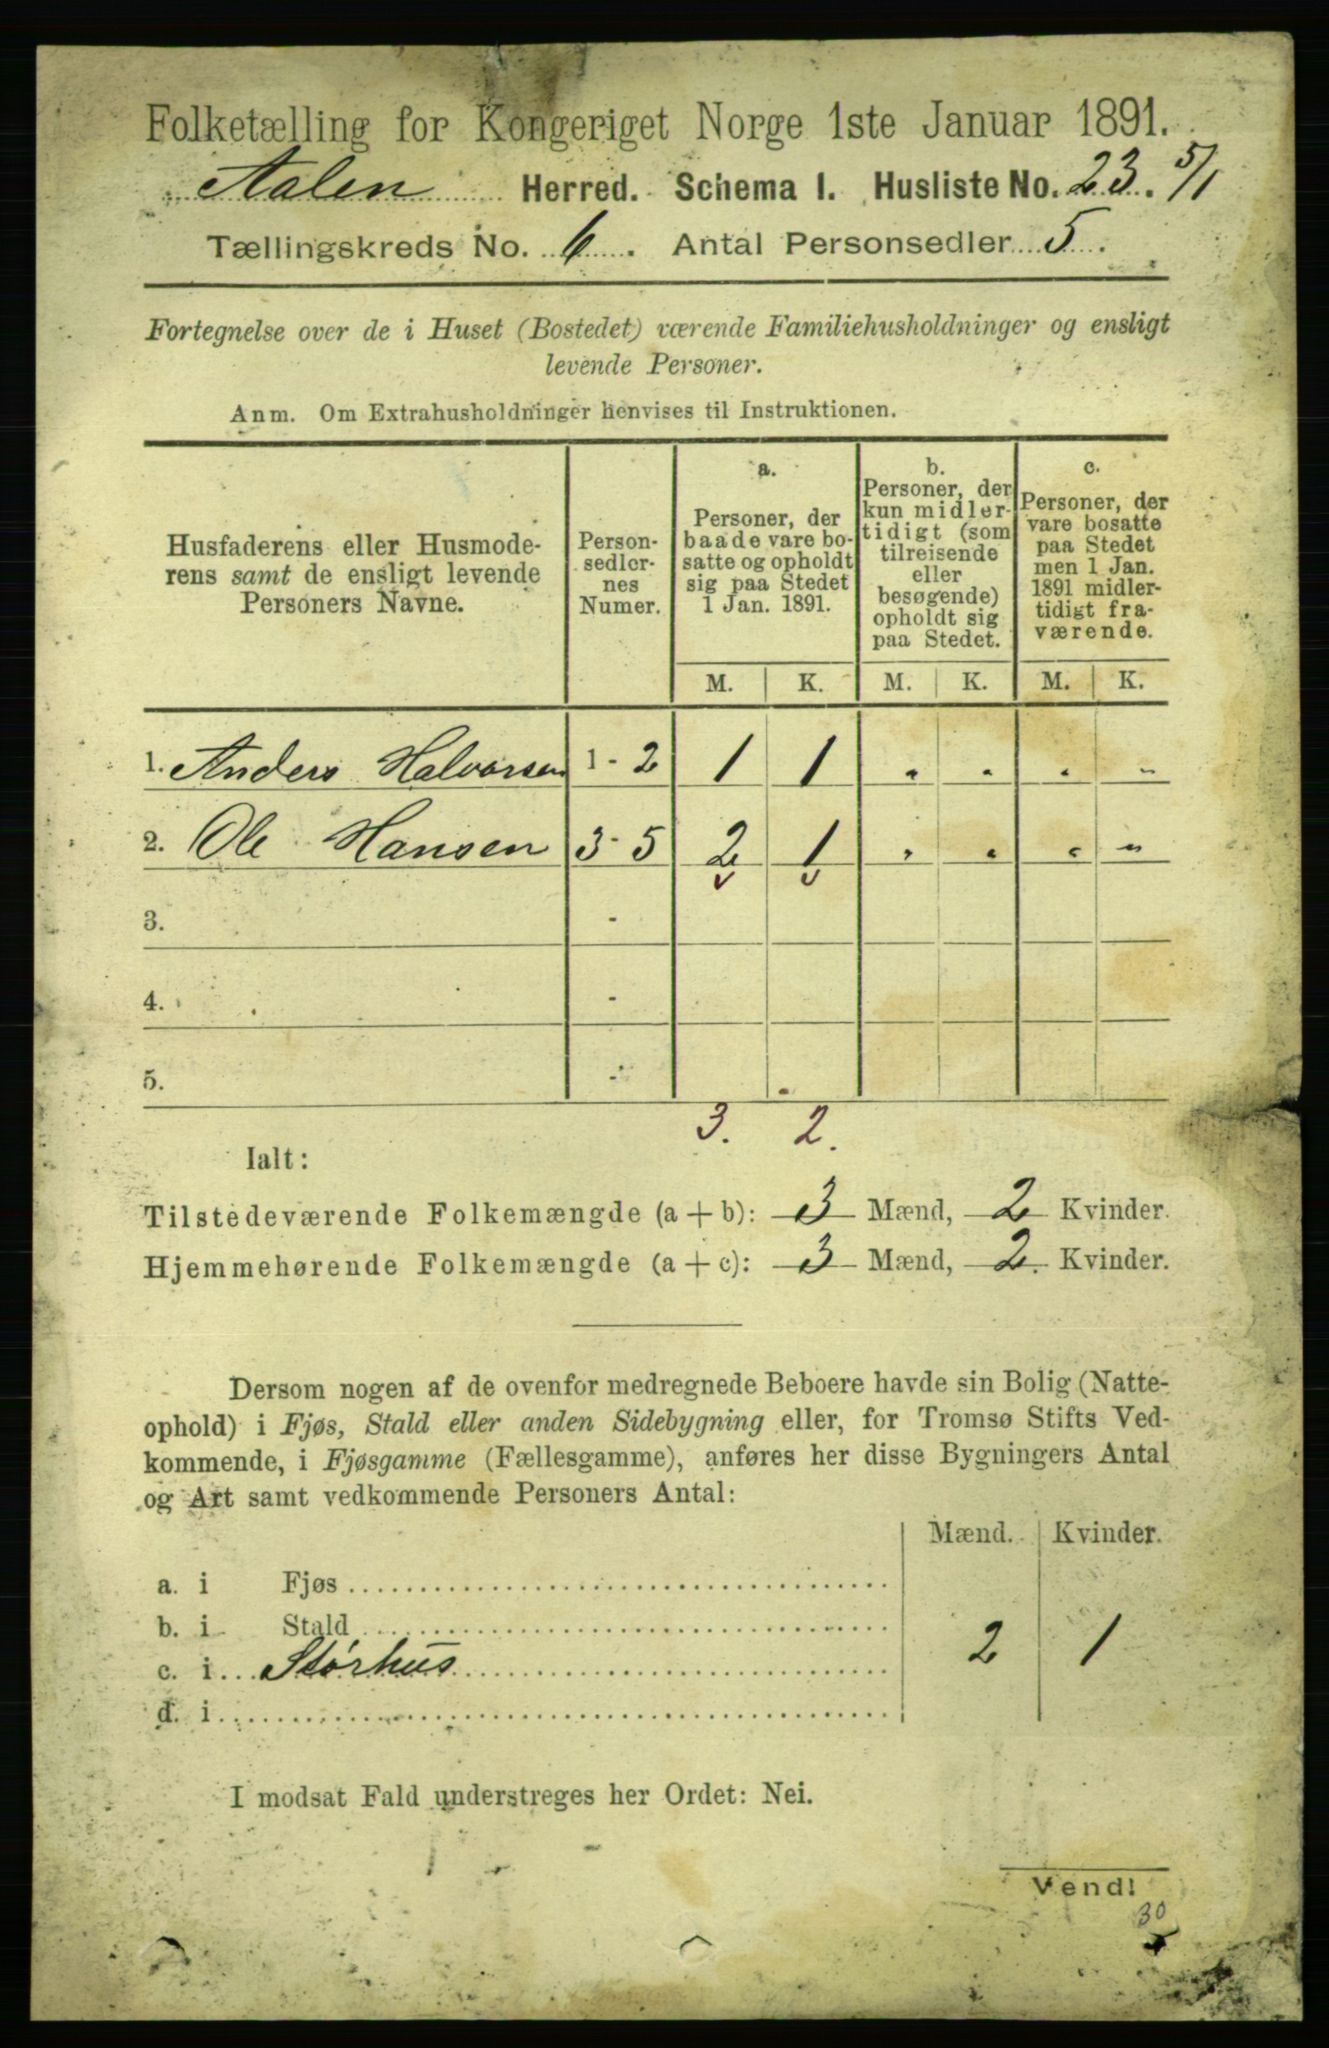 Folketælling for Kongeriget Norge 1ste Januar 1891.
Aalen Herred. Schema I. Husliste No. 23. 5/1
Tællingskreds No. 6. Antal Personsedler 5.
Fortegnelse over de i Huset (Bostedet) værende Familiehusholdninger og ensligt
levende Personer.
Anm. Om Extrahusholdninger henvises til Instruktionen.
Husfaderens eller Husmode-
rens samt de ensligt levende
Personers Navne.
Person-
sedler-
nes
Numer.
a.
Personer, der
baade vare bo-
satte og opholdt
sig paa Stedet
1 Jan. 1891.
b.
Personer, der
kun midler-
tidigt (som
tilreisende
eller
besøgende)
opholdt sig
paa Stedet.
c.
Personer, der
vare bosatte
paa Stedet
men 1 Jan.
1891 midler-
tidigt fra-
værende.
M. K. M. K. M. K.
1. Anders Halvorsen 1 - 2 1 1 " " " "
2. Ole Hansen 3 - 5 2 1 " " " "
3. -
4. -
5. -
3. 2.
Ialt:
Tilstedeværende Folkemængde (a + b): 3 Mænd, 2 Kvinder.
Hjemmehørende Folkemængde (a + c): 3 Mænd, 2. Kvinder.
Dersom nogen af de ovenfor medregnede Beboere havde sin Bolig (Natte-
ophold) i Fjøs, Stald eller anden Sidebygning eller, for Tromsø Stifts Ved-
kommende, i Fjøsgamme (Fællesgamme), anføres her disse Bygningers Antal
og Art samt vedkommende Personers Antal:
Mænd. Kvinder.
a. i Fjøs
b. i Stald
c. i Størhus 2 1
d. i
I modsat Fald understreges her Ordet: Nei.
Vend!
30